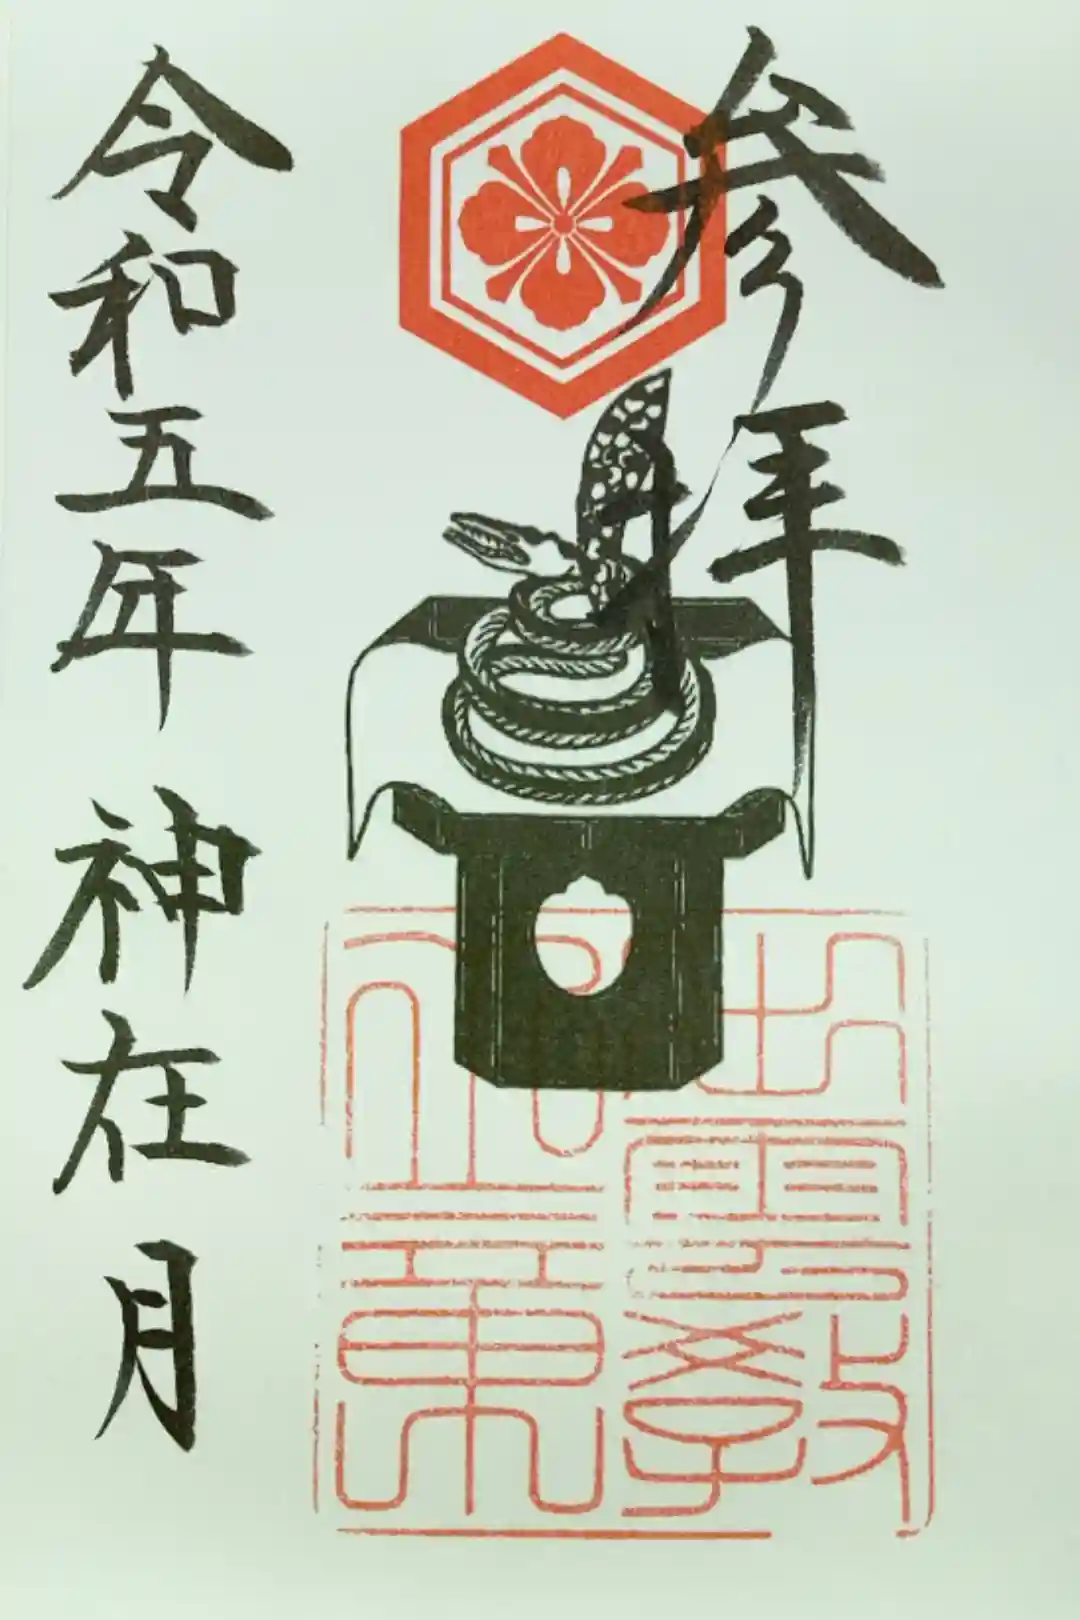 参拝
令和五年 神在月
出雲教